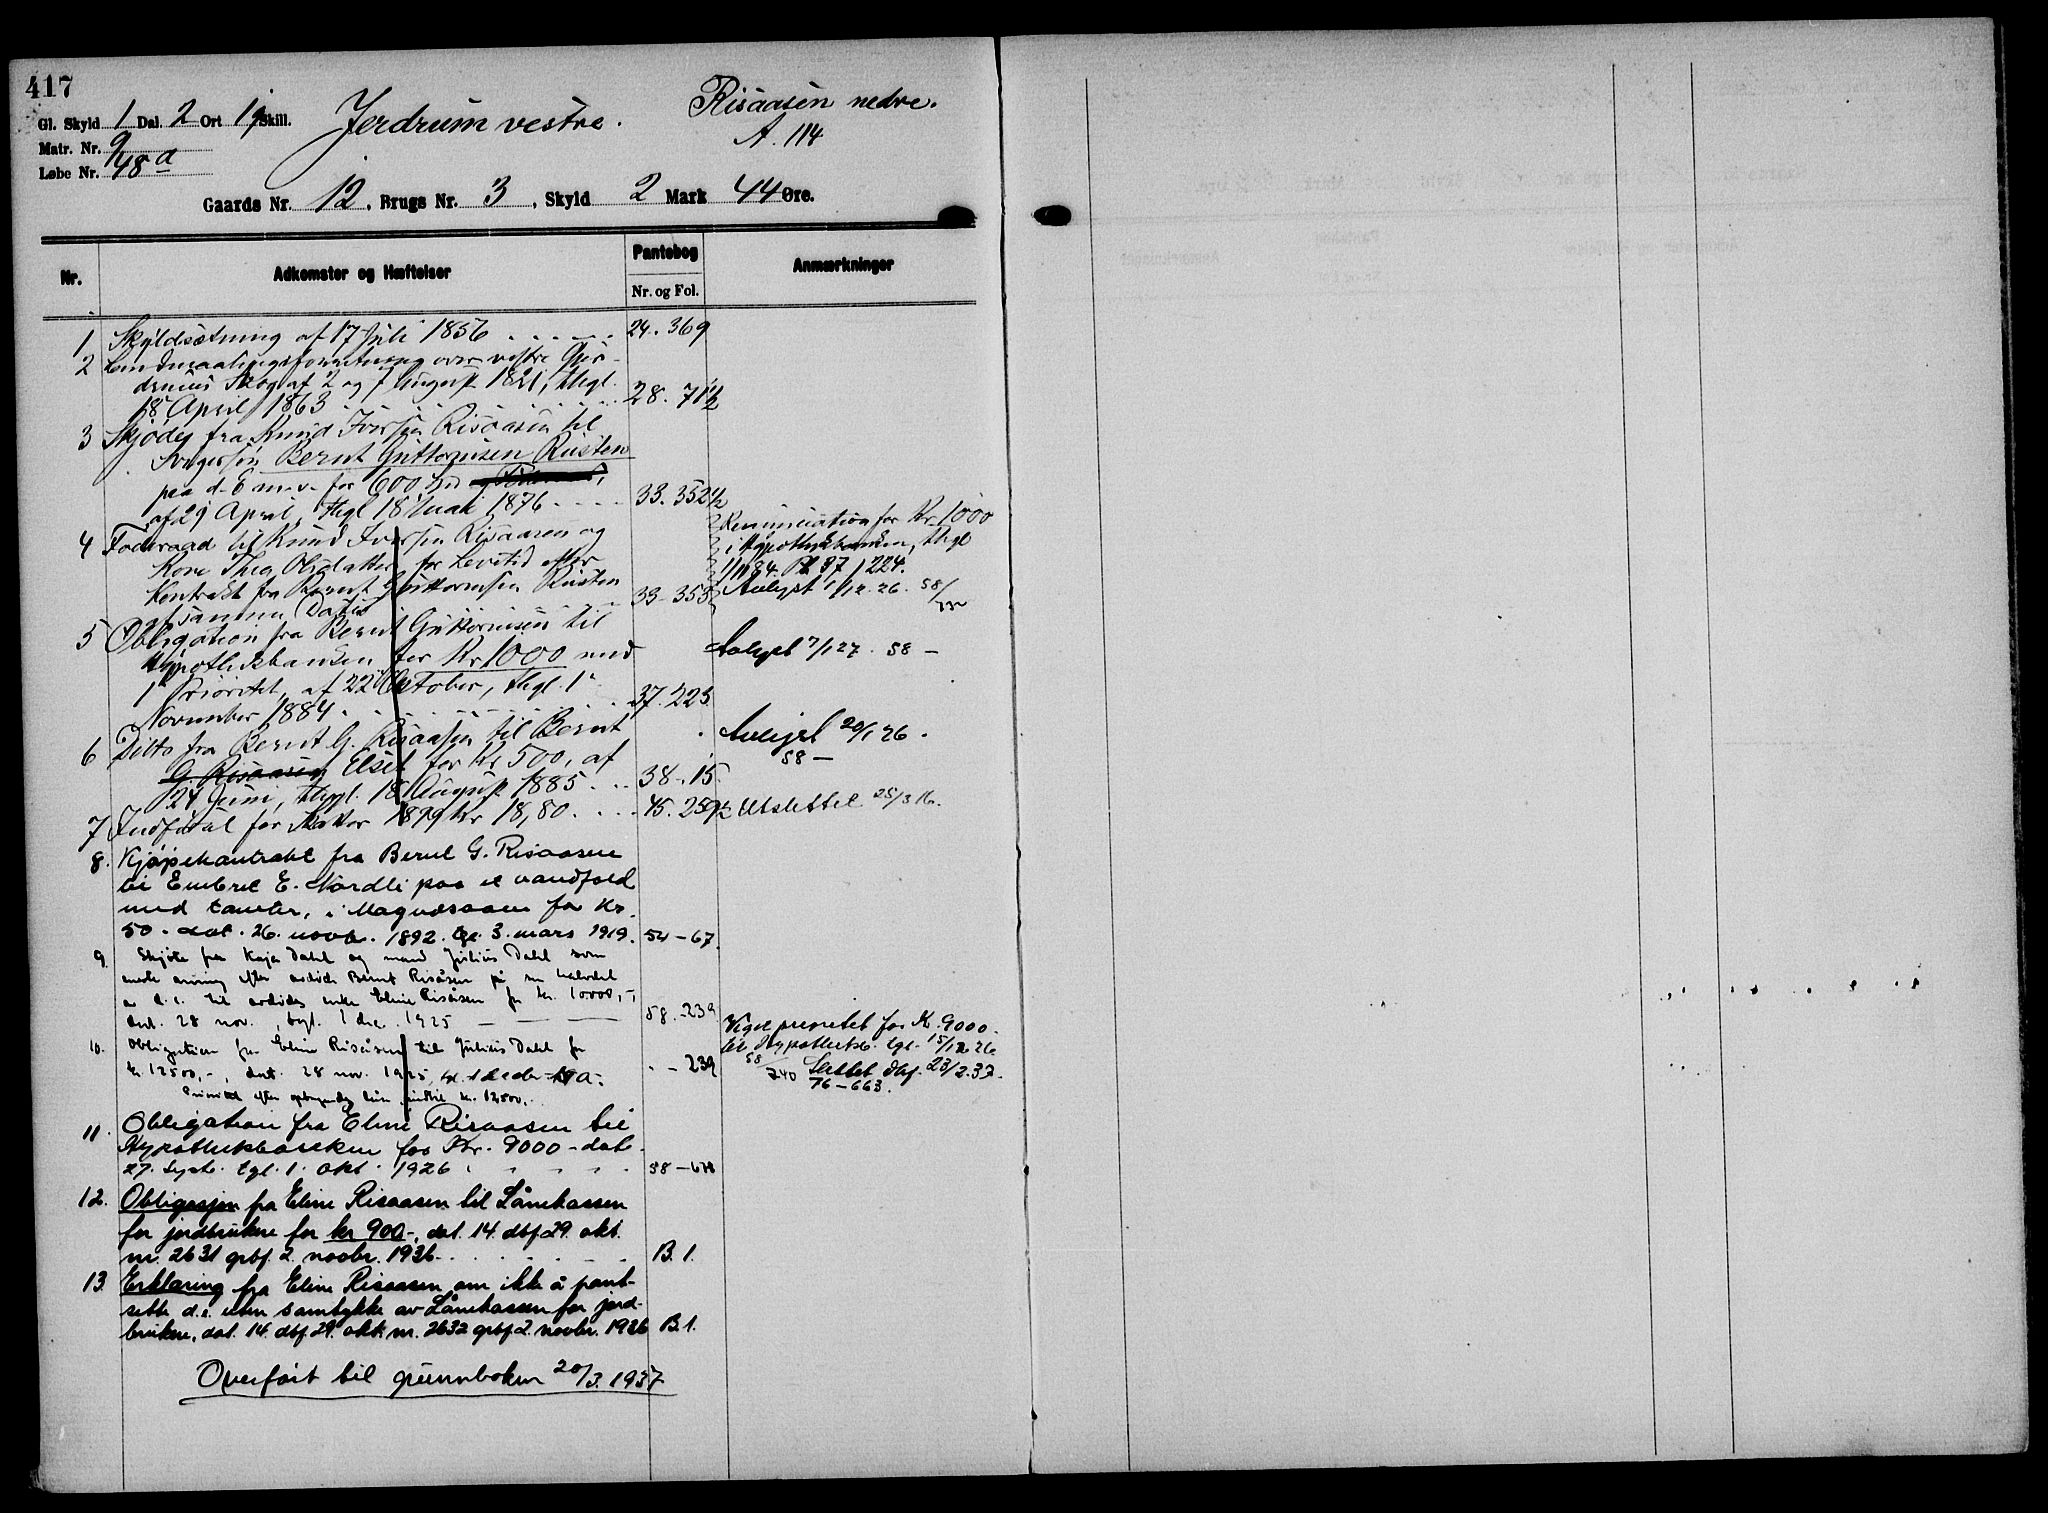 417
Gl. Skyld 1 Dal. 2 Ort 19 Skill. Jerdrum vestre. Risaasen nedre.
A. 114
Matr. Nr. 9
Løbe Nr. 48a
Gaards Nr. 12, Brugs Nr. 3, Skyld 2 Mark 44 Øre.
Nr. Adkomster og Hæftelser Pantebog Anmærkninger
Nr. og Fol.
1 Skyldsætning af 17 Juli 1856 24. 369
2 over vestre Gjer-
drums Skog af 2 og 7 August 1821, thgl.
18 April 1863 28. 71½
3 Skjøde fra Knud Iversen Risaasen til
Svigersøn Bernt Guttormsen Rusten
paa d. E. m. v. for 600 Spd
af 29 April, thgl 18 Mai 1876 33. 352½
4 Foderaad til Knud Iversen Risaasen og
Kone Thea Olsdatter for Levetid efter
Kontrakt fra Bernt Guttormsen Rusten
af samme Dato 33-353
Renunciation for Kr. 1000
i Hypothekbanken, thgl
1/11 84. P. 37 / 224.
Avlyst 1/12. 26. 58/
5 Obligation fra Bernt Guttormsen til
Hypothekbanken for Kr 1000 med
1 Prioritet, af 22 October, thgl. 1
November 1884 37. 225
Avlyst 7/1 27. 58 –
6 Ditto fra Bernt G. Risaasen til Bernt
G. Risaasen Elset for Kr 500, af
24 Juni, thgl. 18 August 1885 38. 15
Avlyst 20/1 26.
58 –
7 Indførsel for Skatter 1899 Kr 18,80 45. 259½ Utslettet 25/3 16.
8. Kjøpekontrakt fra Bernt G. Risaasen
til Embret E. Nordli paa et vandfald
med tomter, i Magnosaaen for Kr.
50 - dat. 26. novb. 1892. tgl. 3. mars 1919. 54-67.
9. Skjøte fra Kaja Dahl og mand Julius Dahl som
eneste arving efter avdøde Bernt Risåsen på sin halvdel
av d. e. til avdødes enke Eline Risåsen for kr. 10000,-,
dat. 28 nov., tgl. 1 dec. 1925 58.-239
10. Obligation fra Eline Risåsen til Julius Dahl for
kr. 12500,-, dat. 28 nov. 1925,
Prioritet efter lån indtil kr. 12,500.-
" - 239
Veget prioritet for Kr. 9000-
til Hypothekb. tgl. 15/12 26
58/240 Slettet dbf. 23/2. 37.
76-663.
11. Obligation fra Eline Risaasen til
Hypothekbanken for Kr. 9000 - dat.
27. Septb. tgl. 1. okt. 1926 58-678
12. Obligasjon fra Eline Risaasen til Lånekassen
for jordbrukere for kr 900-, dat. 14. dbf 29. okt.
nr. 2631 grbf. 2. novbr. 1936 B. 1.
13. Erklæring fra Eline Risaasen om ikke å pant-
sette d. e. uten samtykke av Lånekassen for jord-
brukere, dat. 14. dbf 29. okt. nr. 2632 grbf 2. novbr. 1936 B. 1.
Overført til grunnboken 20/3. 1937